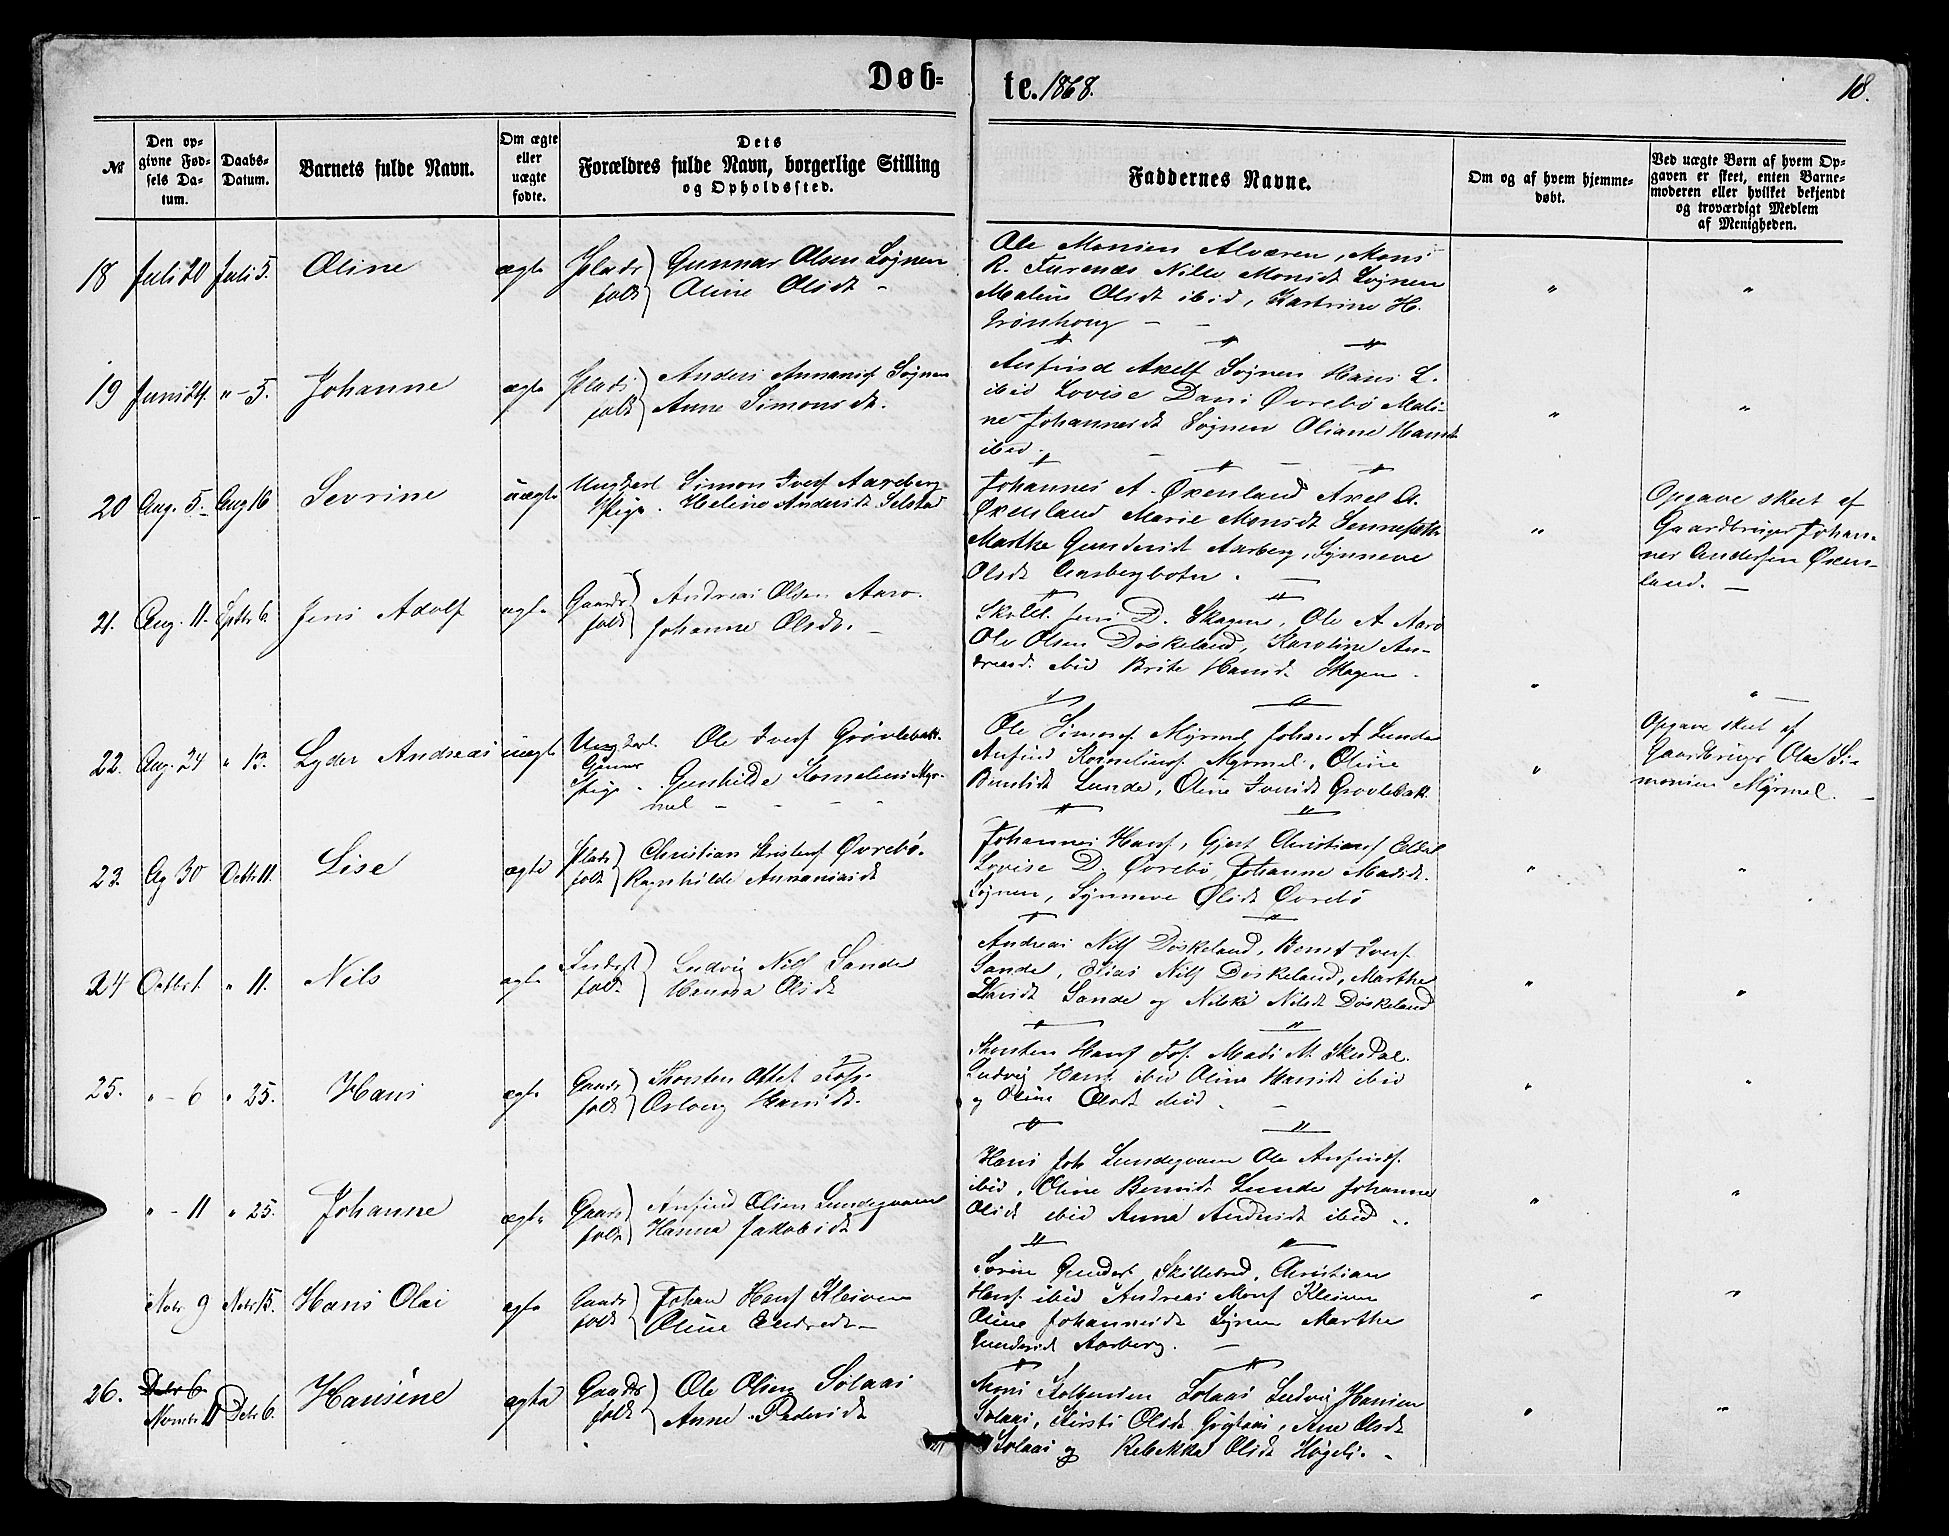 Døb-
te. 1868.
18.
№
Den op-
givne Fød-
sels Da-
tum.
Daabs-
Datum.
Barnets fulde Navn.
Om ægte
eller
uægte
fødte.
Dets
Forældres fulde Navn, borgerlige Stilling
og Opholdssted.
Faddernes Navne.
Om og af hvem hjemme-
døbt.
Ved uægte Børn af hvem Op-
gaven er skeet, enten Barne-
moderen eller hvilket bekjendt
og troværdigt Medlem
af Menigheden.
18 Juli 5. Oline ægte Plads folk Gunnar Olsen Søgnen
Oline Olsdt
Ole Monsen Alværen, Mons
R. Furenæs Nille Monsdt Søgnen
Malene Olsdt ibid, Kartrine H.
Grønhoug
19 Juni 24. " - 5. Johanne ægte Plads folk Anders Annanias. Søgnen
Anne Simonsdt.
Anfind Axelss Søgnen Hans L.
ibid Lovise Dans Øvrebø Mali-
ne Johannesdt Søgnen Oliane Hansdt
ibid.
20 Aug. 5. Aug 16 Sevrine uægte Ungkarl Simon Ivers Aareberg
Pige. Heline Andersdt Selstad
Johannes A. Øxenland Axel A.
Øxenland Marie Monsdt
Marthe Gundersdt Aarberg, Synneve
Olsdt Aarbergbotn.
Opgave skeet af
Gaardbruger Johan-
nes Andersen Øxen-
land.
21. Aug. 11. Septbr 6. Jens Adolf ægte Gaard folk Andreas Olsen Aarø.
Johanne Olsdt.
Jens D. Skagen, Ole A Aarø
Ole Olsen Døskeland, Karoline An-
dreasd. ibid Brite Hansdt Skagen.
22. Aug. 24 " 13. Lyder Andreas uægte Ungkarl Ole Ivers Grøvlebak.
Pige. Gunhilde Kornelius Myr-
mel
Ole Simons Myrmel Johan A Lunde
Anfind Korneliuss. Myrmel, Oline
Bendixdt Lunde, Oline Iversdt Grovlebak.
Opgave skeet af
Gaardbruger Ole Si-
monsen Myrmel.
23. Ag 30 Octbr 11. Lise ægte Plads folk Christian Kristens Øvrebø.
Ragnhilde Annaniasdt
Johannes Hans, Gjert Christians
Lovise D. Øvrebø, Johanne Madsdt.
Søgnen, Synneve Olsdt Øvrebø
24 Octbr 1. " 11. Nils ægte Inderst folk Ludvig Nils Sande
Hanna Olsdt
Andreas Nils Døskeland, Bernt Ivers.
Sande, Elias Nils Døskeland, Marthe
Sande og Nilsdt Døskeland
25. " - 6 " 25. Hans ægte Gaard folk Thorsten Fos.
Hansdt.
Thorsten Hans Fos. Mads M. Skudal.
Ludvig Hans. ibid Oline Hansdt ibid
og Oline Olsdt ibid.
" - 11 " 25. Johanne ægte Gaard folk Anfind Olsen Lundegvam
Hanna Jakobsdt
Hans Joh Lundegvam Ole Anfinds.
ibid, Oline Berntdt Lunde Johanne
Olsdt ibid Anna Andersdt ibid
Novbr 9 Novbr 15. Hans Olai ægte Gaard folk Johan Hans Kleiven
Oline Endredt
Søren Gunders. Skilbred, Christian
Hans. ibid Andreas Mons Kleiven
Oline Johannesdt Søgnen Marthe
Gundersdt Aarberg.
26. Debr 6. Novbr 11 Debr 6. Hansine ægte Gaard folk Ole Olsen Solaas
Anne Pedersdt
Mons Solaas Ludvig Hansen
Solaas, Kirsti Olsdt, Ane Olsdt
Solaas og Rebekka Olsdt Høgeli.